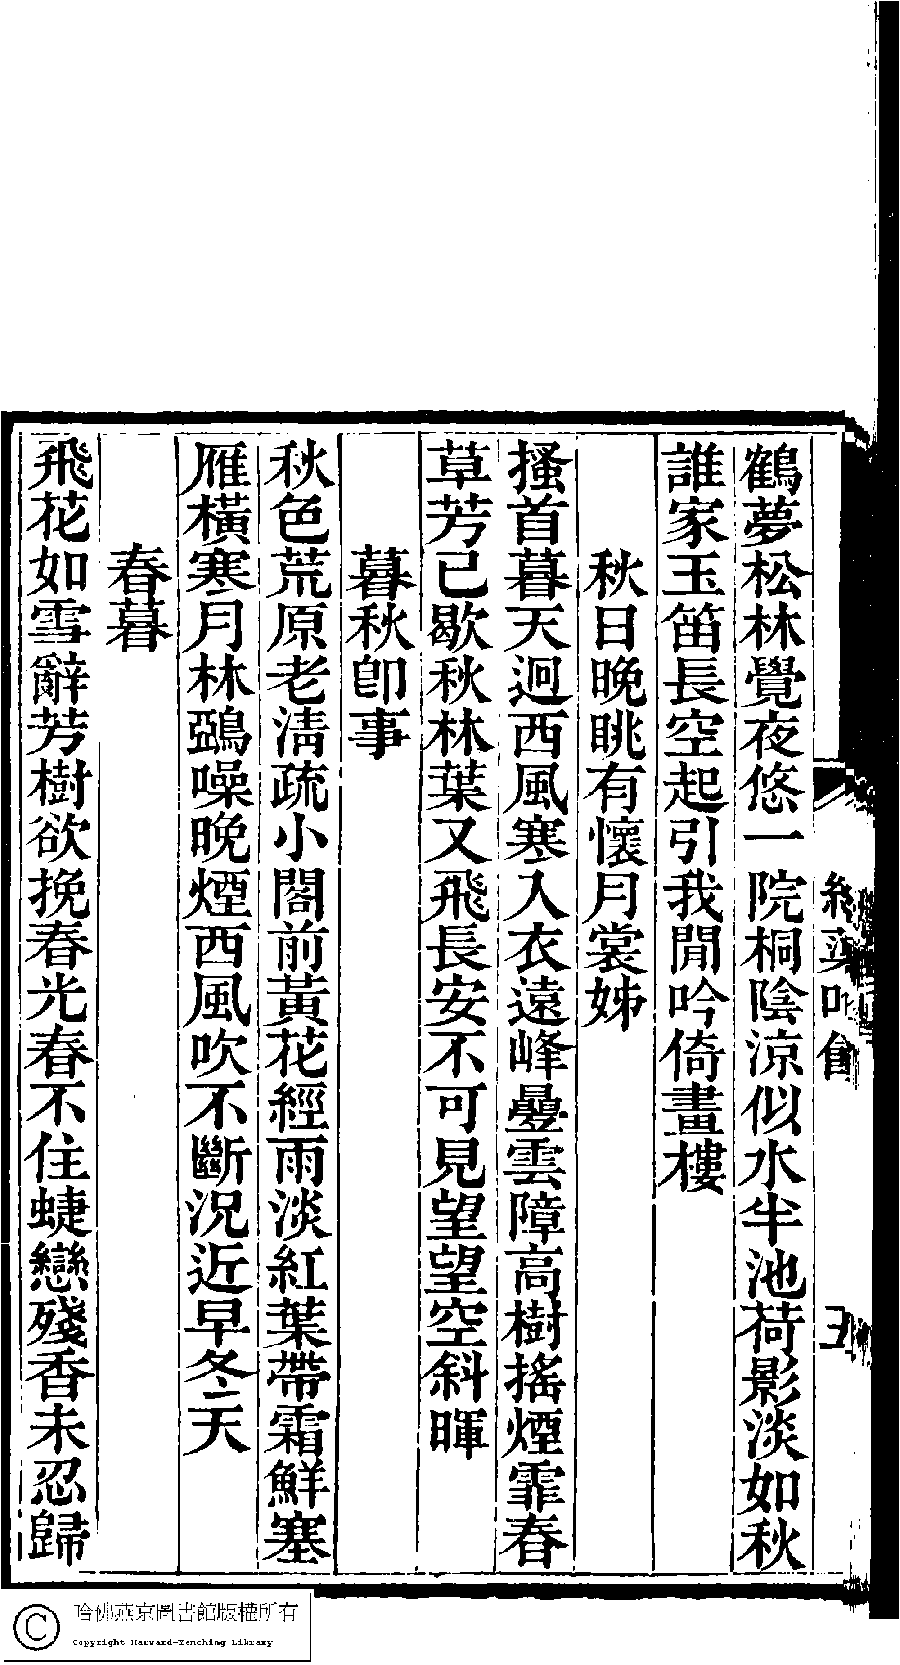 鶴夢松林覺夜悠一院桐陰涼似水半池荷影淡如秋
誰家玉笛長空起引我閒吟倚畫樓
秋日晚眺有懷月裳姊
搔首暮天迥西風寒入衣遠峰疊雲障高樹搖煙霏春
草芳已歇秋林葉又飛長安不可見望望空斜暉
暮秋卽事
秋色荒原老淸疏小閣前黃花經雨淡紅葉帶霜鮮塞
雁橫寒月林鵶噪晚煙西風吹不斷況近早冬天
春暮
飛花如雪辭芳樹欲挽春光春不住蜨戀殘香未忍歸
哈佛燕京圖書館版權所有
Copyright Harvard-Yenching Library